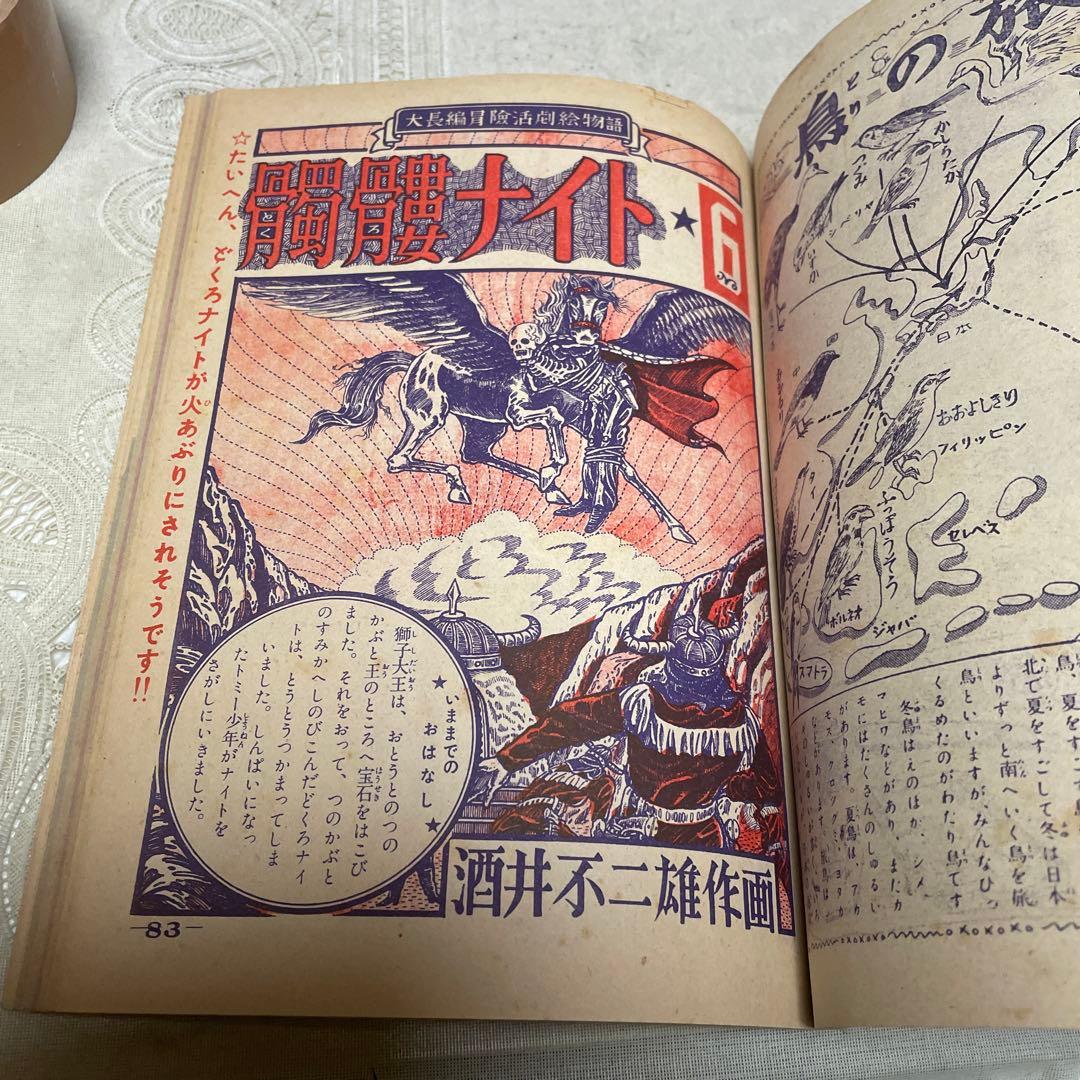 大長編冒険活劇絵物語
髑髏ナイト
どく
ろ
★
6
No
☆たいへん、どくろナイトが火あぶりにされそうです!!
★いままでの
おはなし★
獅子大王は、おとうとのつの
かぶと王のところへ宝石をはこび
ました。それをおって、つのかぶと
のすみかへしのびこんだどくろナイ
トは、とうとうつかまってしま
いました。しんぱいになっ
たトミー少年がナイトを
さがしにいきました。
酒井不二雄作画
—83—
鳥の旅
とり
かしらだか
つぐみ
日本
おおよしきり
フィリッピン
ぶっぽうそう
セレベス
ボルネオ
ジャバ
スマトラ
北で夏をすごして冬は日本
よりずっと南へいく鳥を旅
鳥といいますが、みんなひっ
くるめたのがわたり鳥です
冬鳥はえのほか、シメ、
マヒワなどがあり、まだか
そにはたくさんのしゅるい
があります。夏鳥は、アカ